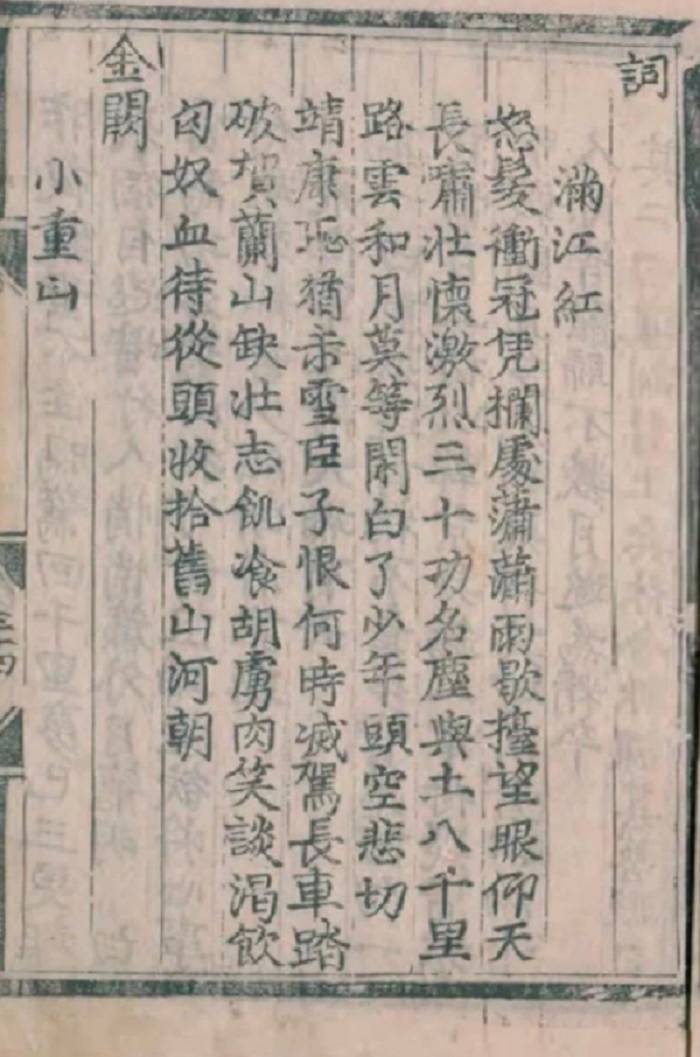 詞
滿江紅
怒髮衝冠凭攔處瀟瀟雨歇擡望眼仰天
長嘯壯懷激烈三十功名塵與土八千里
路雲和月莫等閑白了少年頭空悲切
靖康耻猶未雪臣子恨何時滅駕長車踏
破賀蘭山缺壯志飢飡胡虜肉笑談渴飲
匈奴血待從頭收拾舊山河朝
金闕
小重山
三四